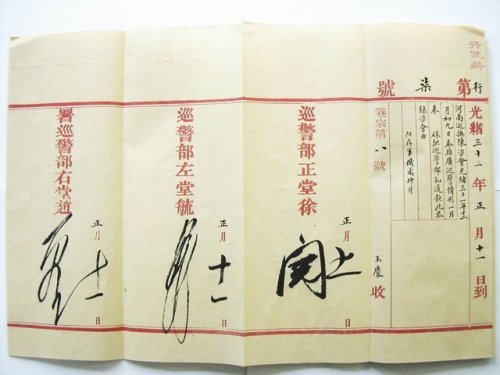 行政科
行第柒號
光緒三十二年正月十一日到
河南巡撫陳咨會光緒三十一年十二
月初九日奏推廣巡警情形一片
奉
硃批巡警部知道欽此恭
錄咨會由
卷宗第八號
玉慶收
巡警部正堂徐
正月十一日
閱
巡警部左堂毓
正月十一日
署巡警部右堂趙
正月十一日